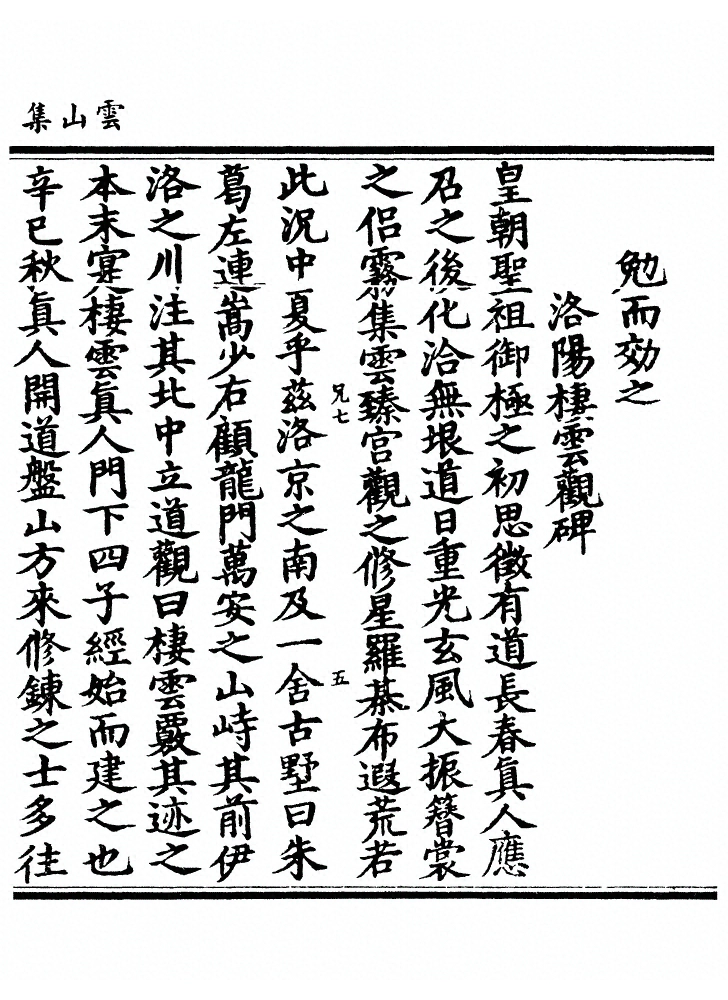 雲山集
勉而効之
洛陽棲雲觀碑
皇朝聖祖御極之初思徵有道長春眞人應
召之後化洽無垠道日重光玄風大振簪裳
之侣霧集雲臻宫觀之修星羅棊布遐荒若
兄七
五
此況中夏乎兹洛京之南及一舍古墅曰朱
葛左連嵩少右顧龍門萬安之山峙其前伊
洛之川注其北中立道觀曰棲雲覈其迹之
本末寔棲雲眞人門下四子經始而建之也
辛巳秋眞人開道盤山方來修鍊之士多往